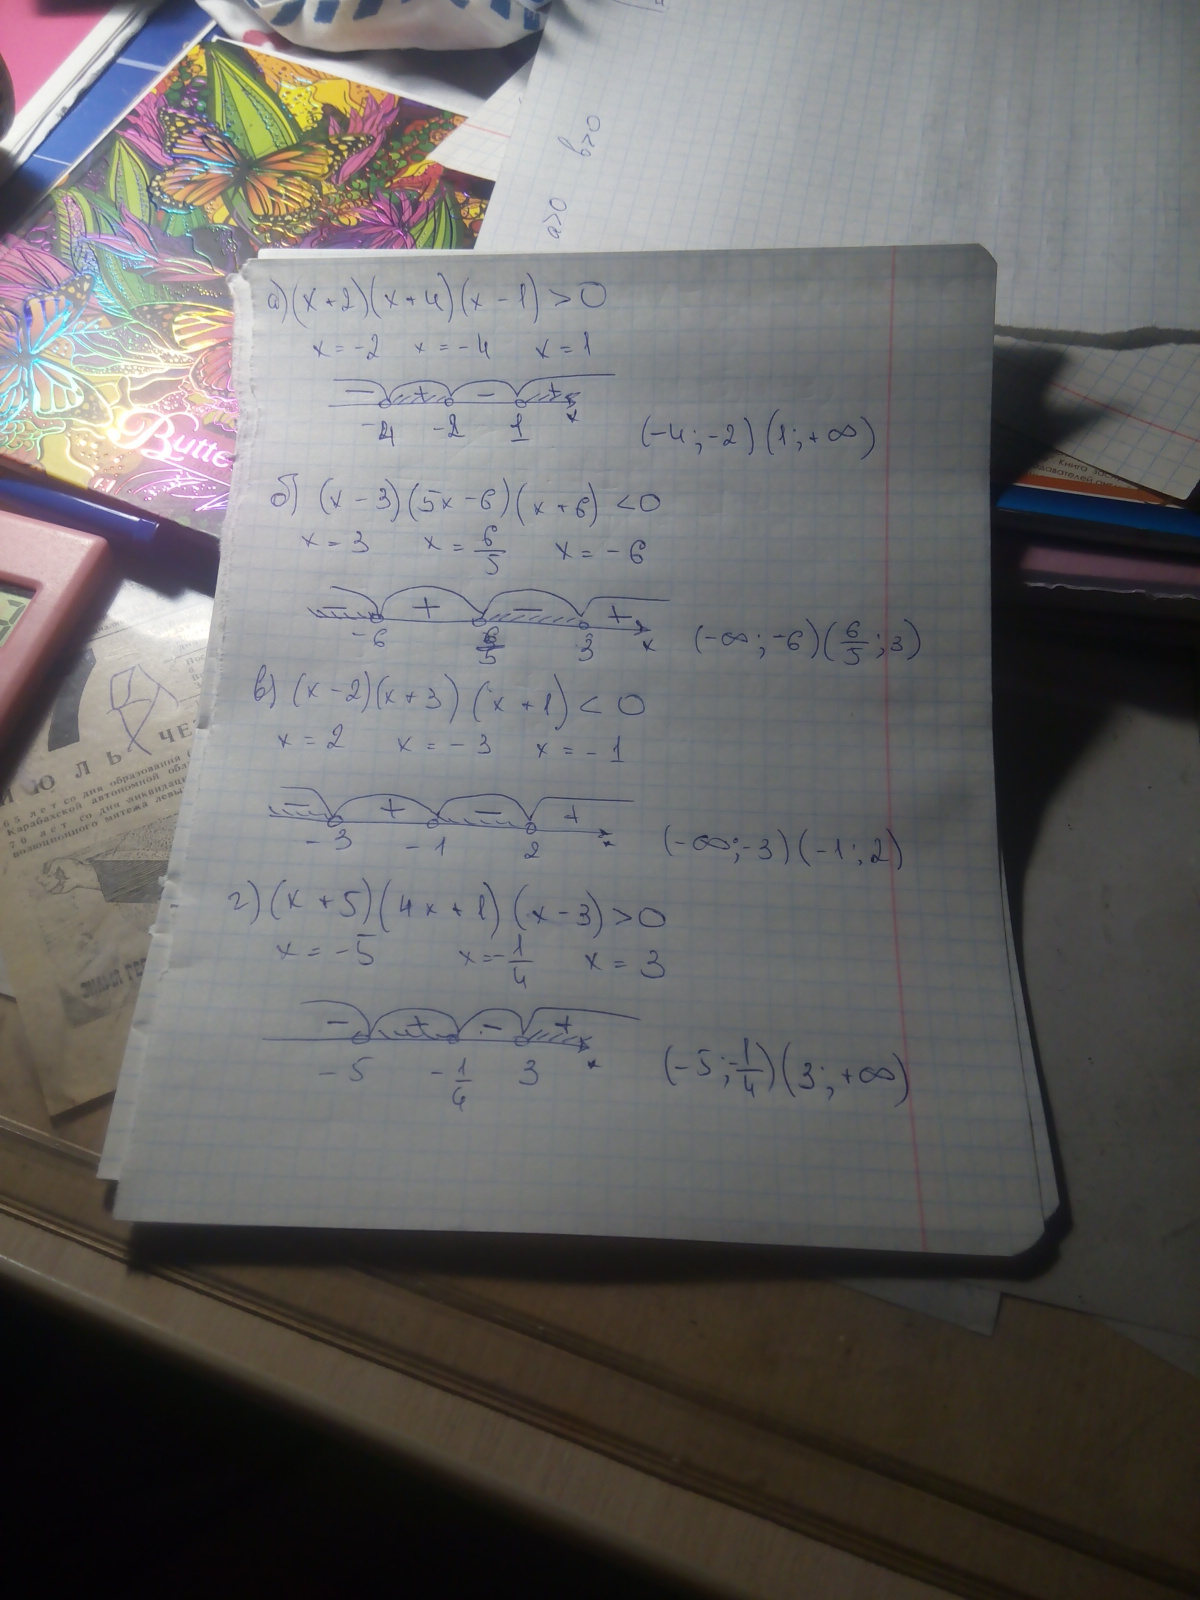 b>0
a>0
а) (x+2)(x+4)(x-1)>0
x=-2 x=-4 x=1
- + - +
-4 -2 1 x (-4;-2)(1;+∞)
Butte
Книга
б) (x-3)(5x-6)(x+6)<0
x=3 x=6/5 x=-6
- + - +
-6 6/5 3 x (-∞;-6)(6/5;3)
в) (x-2)(x+3)(x+1)<0
x=2 x=-3 x=-1
- + - +
-3 -1 2 x (-∞;-3)(-1;2)
г) (x+5)(4x+1)(x-3)>0
x=-5 x=-1/4 x=3
- + - +
-5 -1/4 3 x (-5;-1/4)(3;+∞)
7
ИЮЛЬ ЧЕ
65 лет со дня образования
Карабахской автономной обла
70 лет со дня ликвидации
волюционного мятежа левы